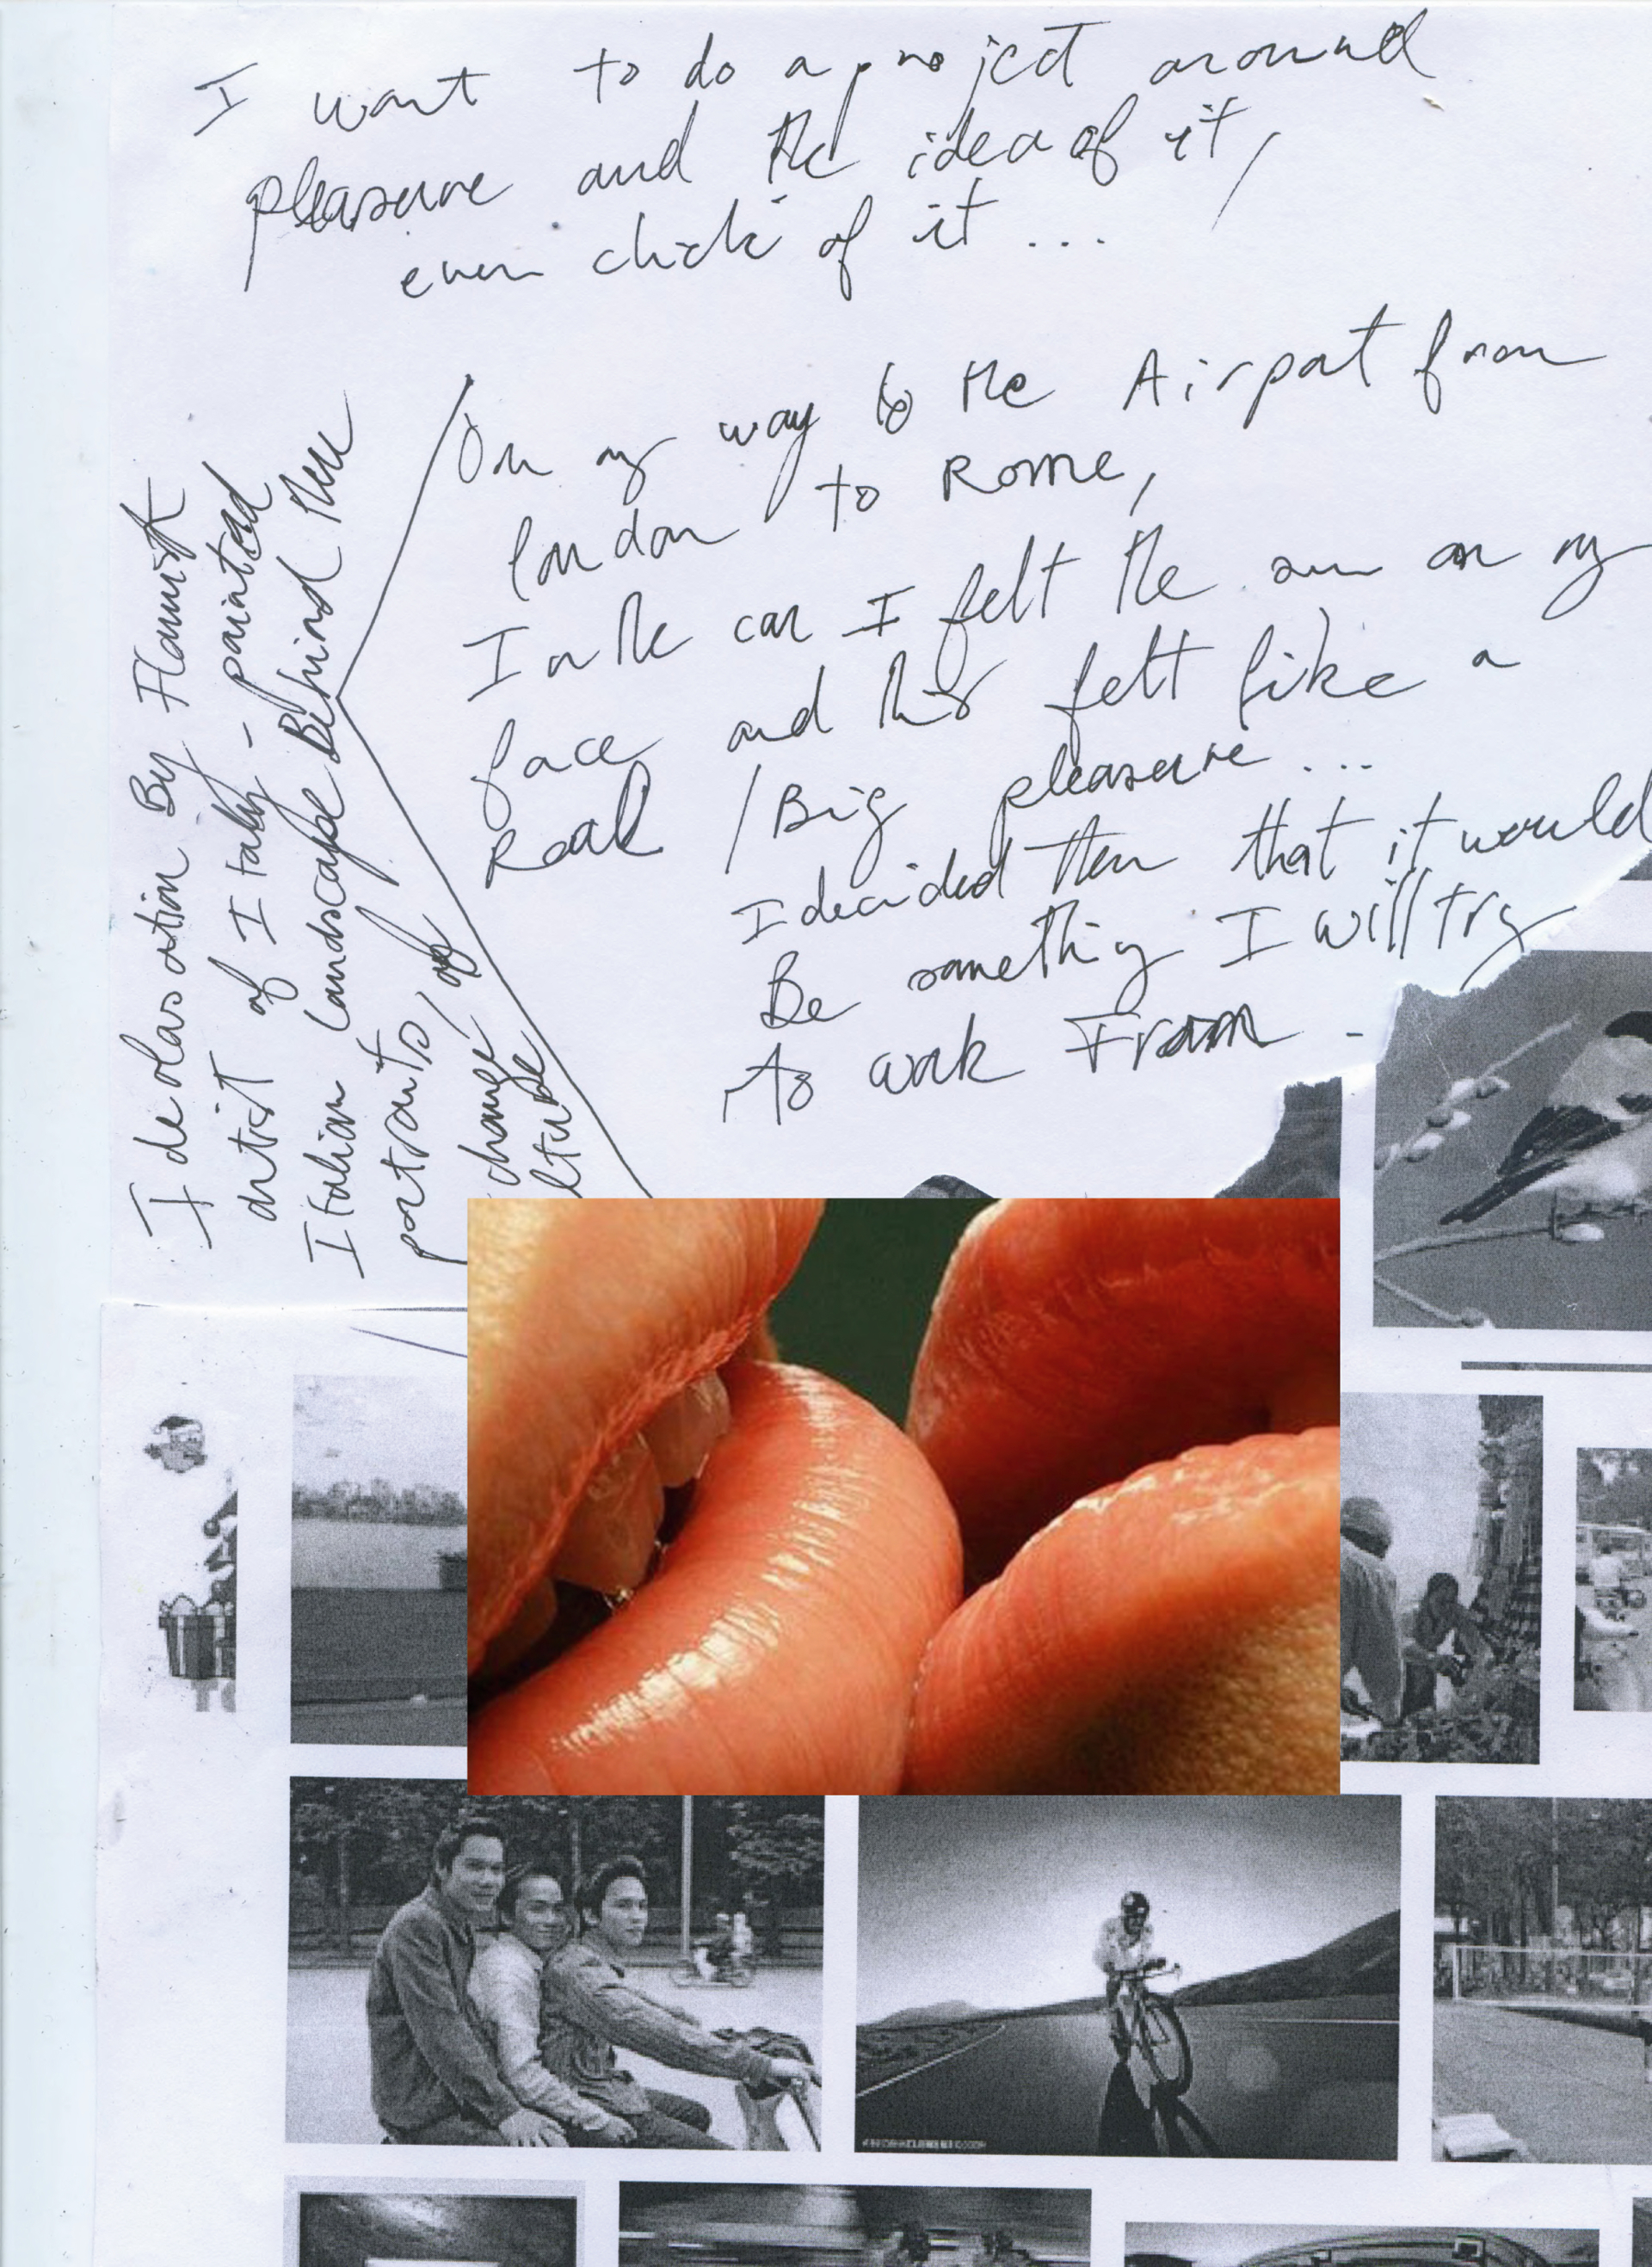 I want to do a project around
pleasure and the idea of it,
even cliché of it ...
On my way to the Airport from
london to Rome,
In the car I felt the sun on my
face and this felt like a
Real / Big pleasure ...
I decided then that it would
Be something I will try
to work From -
Idealisation By Flamish
artist of Italy - painted
Italian landscape Behind their
portraits, of
change